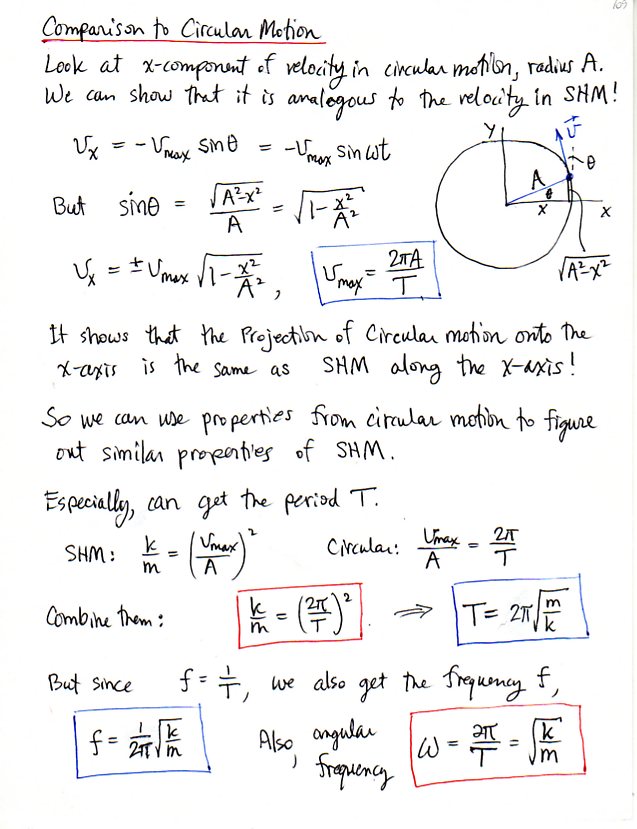 109
Comparison to Circular Motion
Look at x-component of velocity in circular motion, radius A.
We can show that it is analogous to the velocity in SHM!
v_x = -v_max sinθ = -v_max sin ωt
y v⃗ θ A θ x x √(A²-x²)
But sinθ = √(A²-x²)/A = √(1-x²/A²)
v_x = ± v_max √(1-x²/A²), v_max = 2πA/T
It shows that the Projection of Circular motion onto the
x-axis is the same as SHM along the x-axis!
So we can use properties from circular motion to figure
out similar properties of SHM.
Especially, can get the period T.
SHM: k/m = (v_max/A)² Circular: v_max/A = 2π/T
Combine them: k/m = (2π/T)² ⟹ T = 2π√(m/k)
But since f = 1/T, we also get the frequency f,
f = 1/2π √(k/m) Also, angular frequency ω = 2π/T = √(k/m)